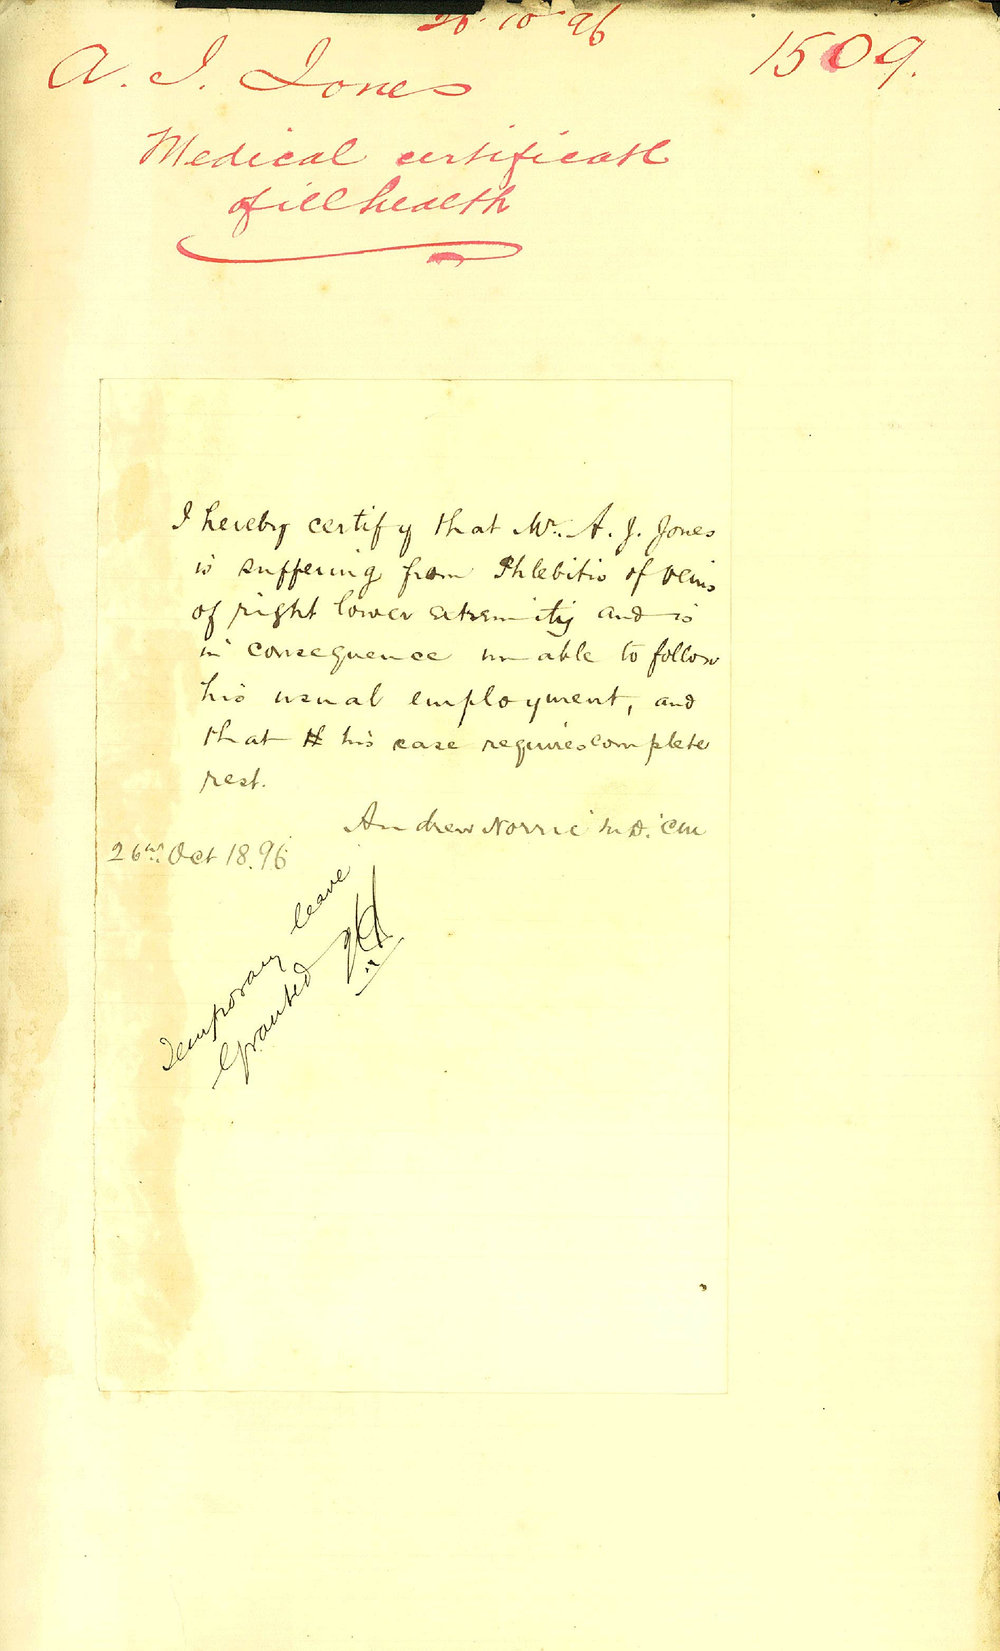 26·10·96
A. J. Jones
1509.
Medical certificate
of ill health
I hereby certify that Mr. A. J. Jones
is suffering from Phlebitis of veins
of right lower extremity and is
in consequence unable to follow
his usual employment, and
that his case requires complete
rest.
Andrew Norrie M.D. CM
26th Oct 18.96
Temporary leave
Granted